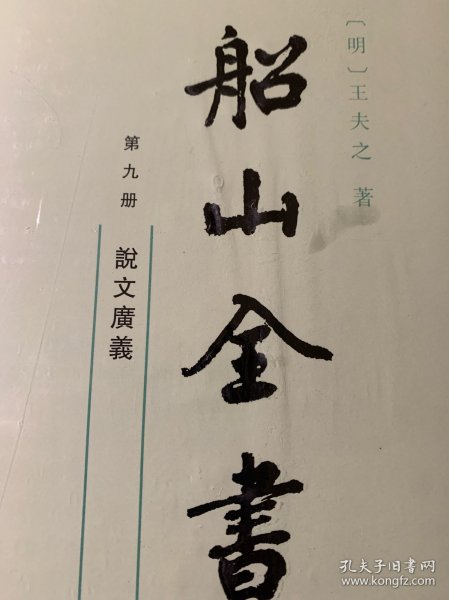 〔明〕王夫之 著
船山全書
第九册
說文廣義
孔夫子旧书网
www.kongfz.com